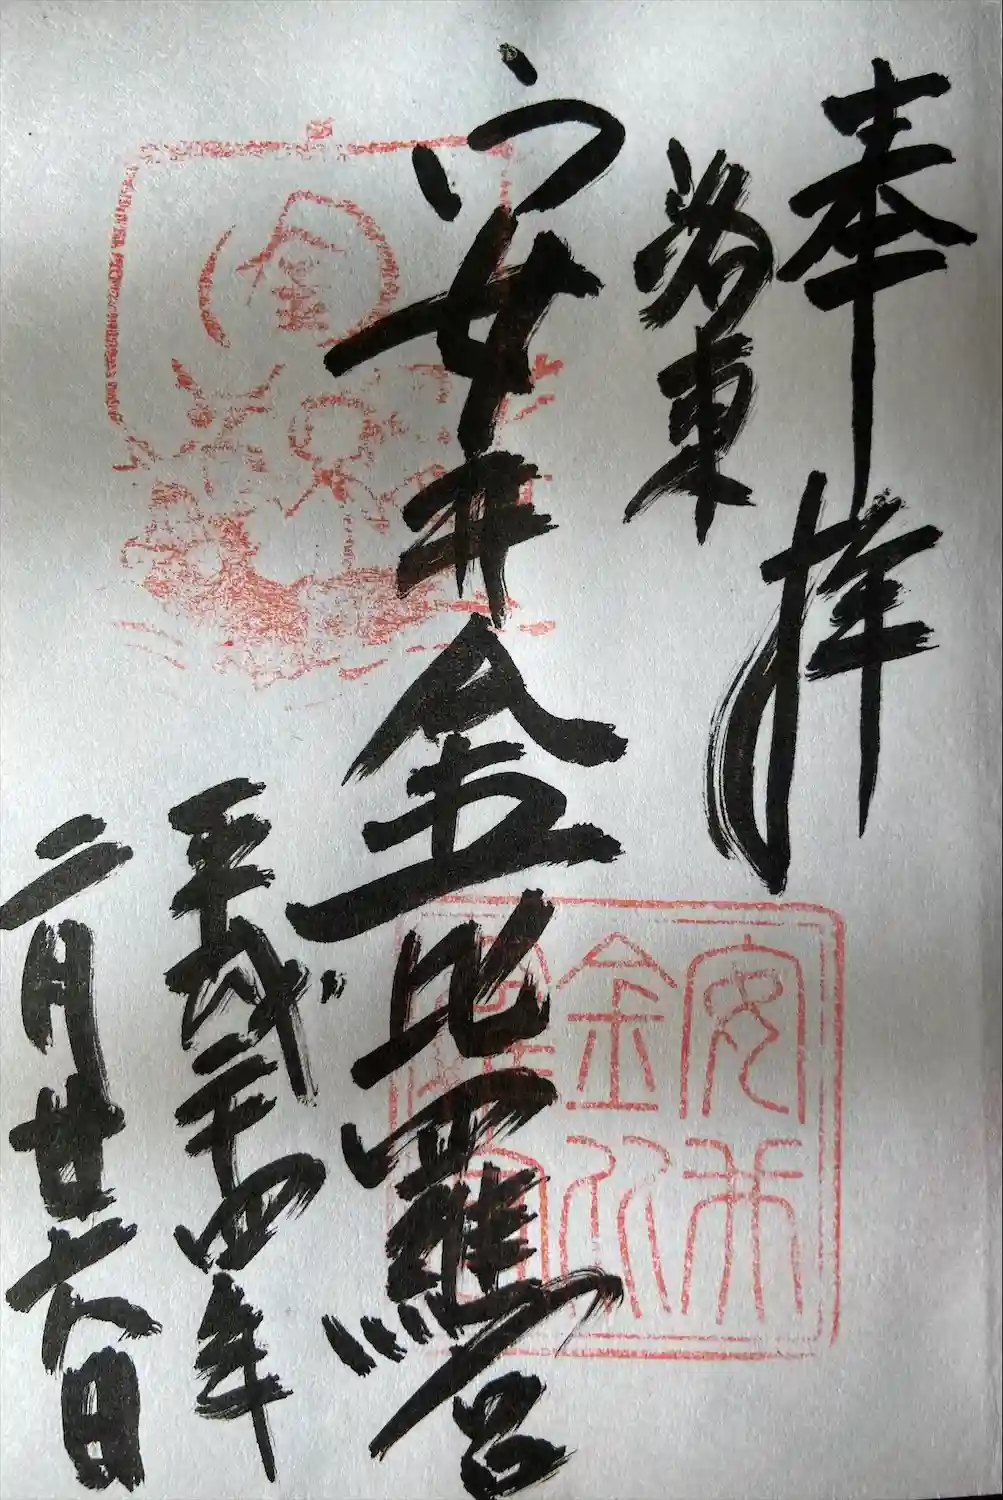 奉拝
洛東
安井金比羅宮
平成二十四年
二月廿六日
安井金比羅宮